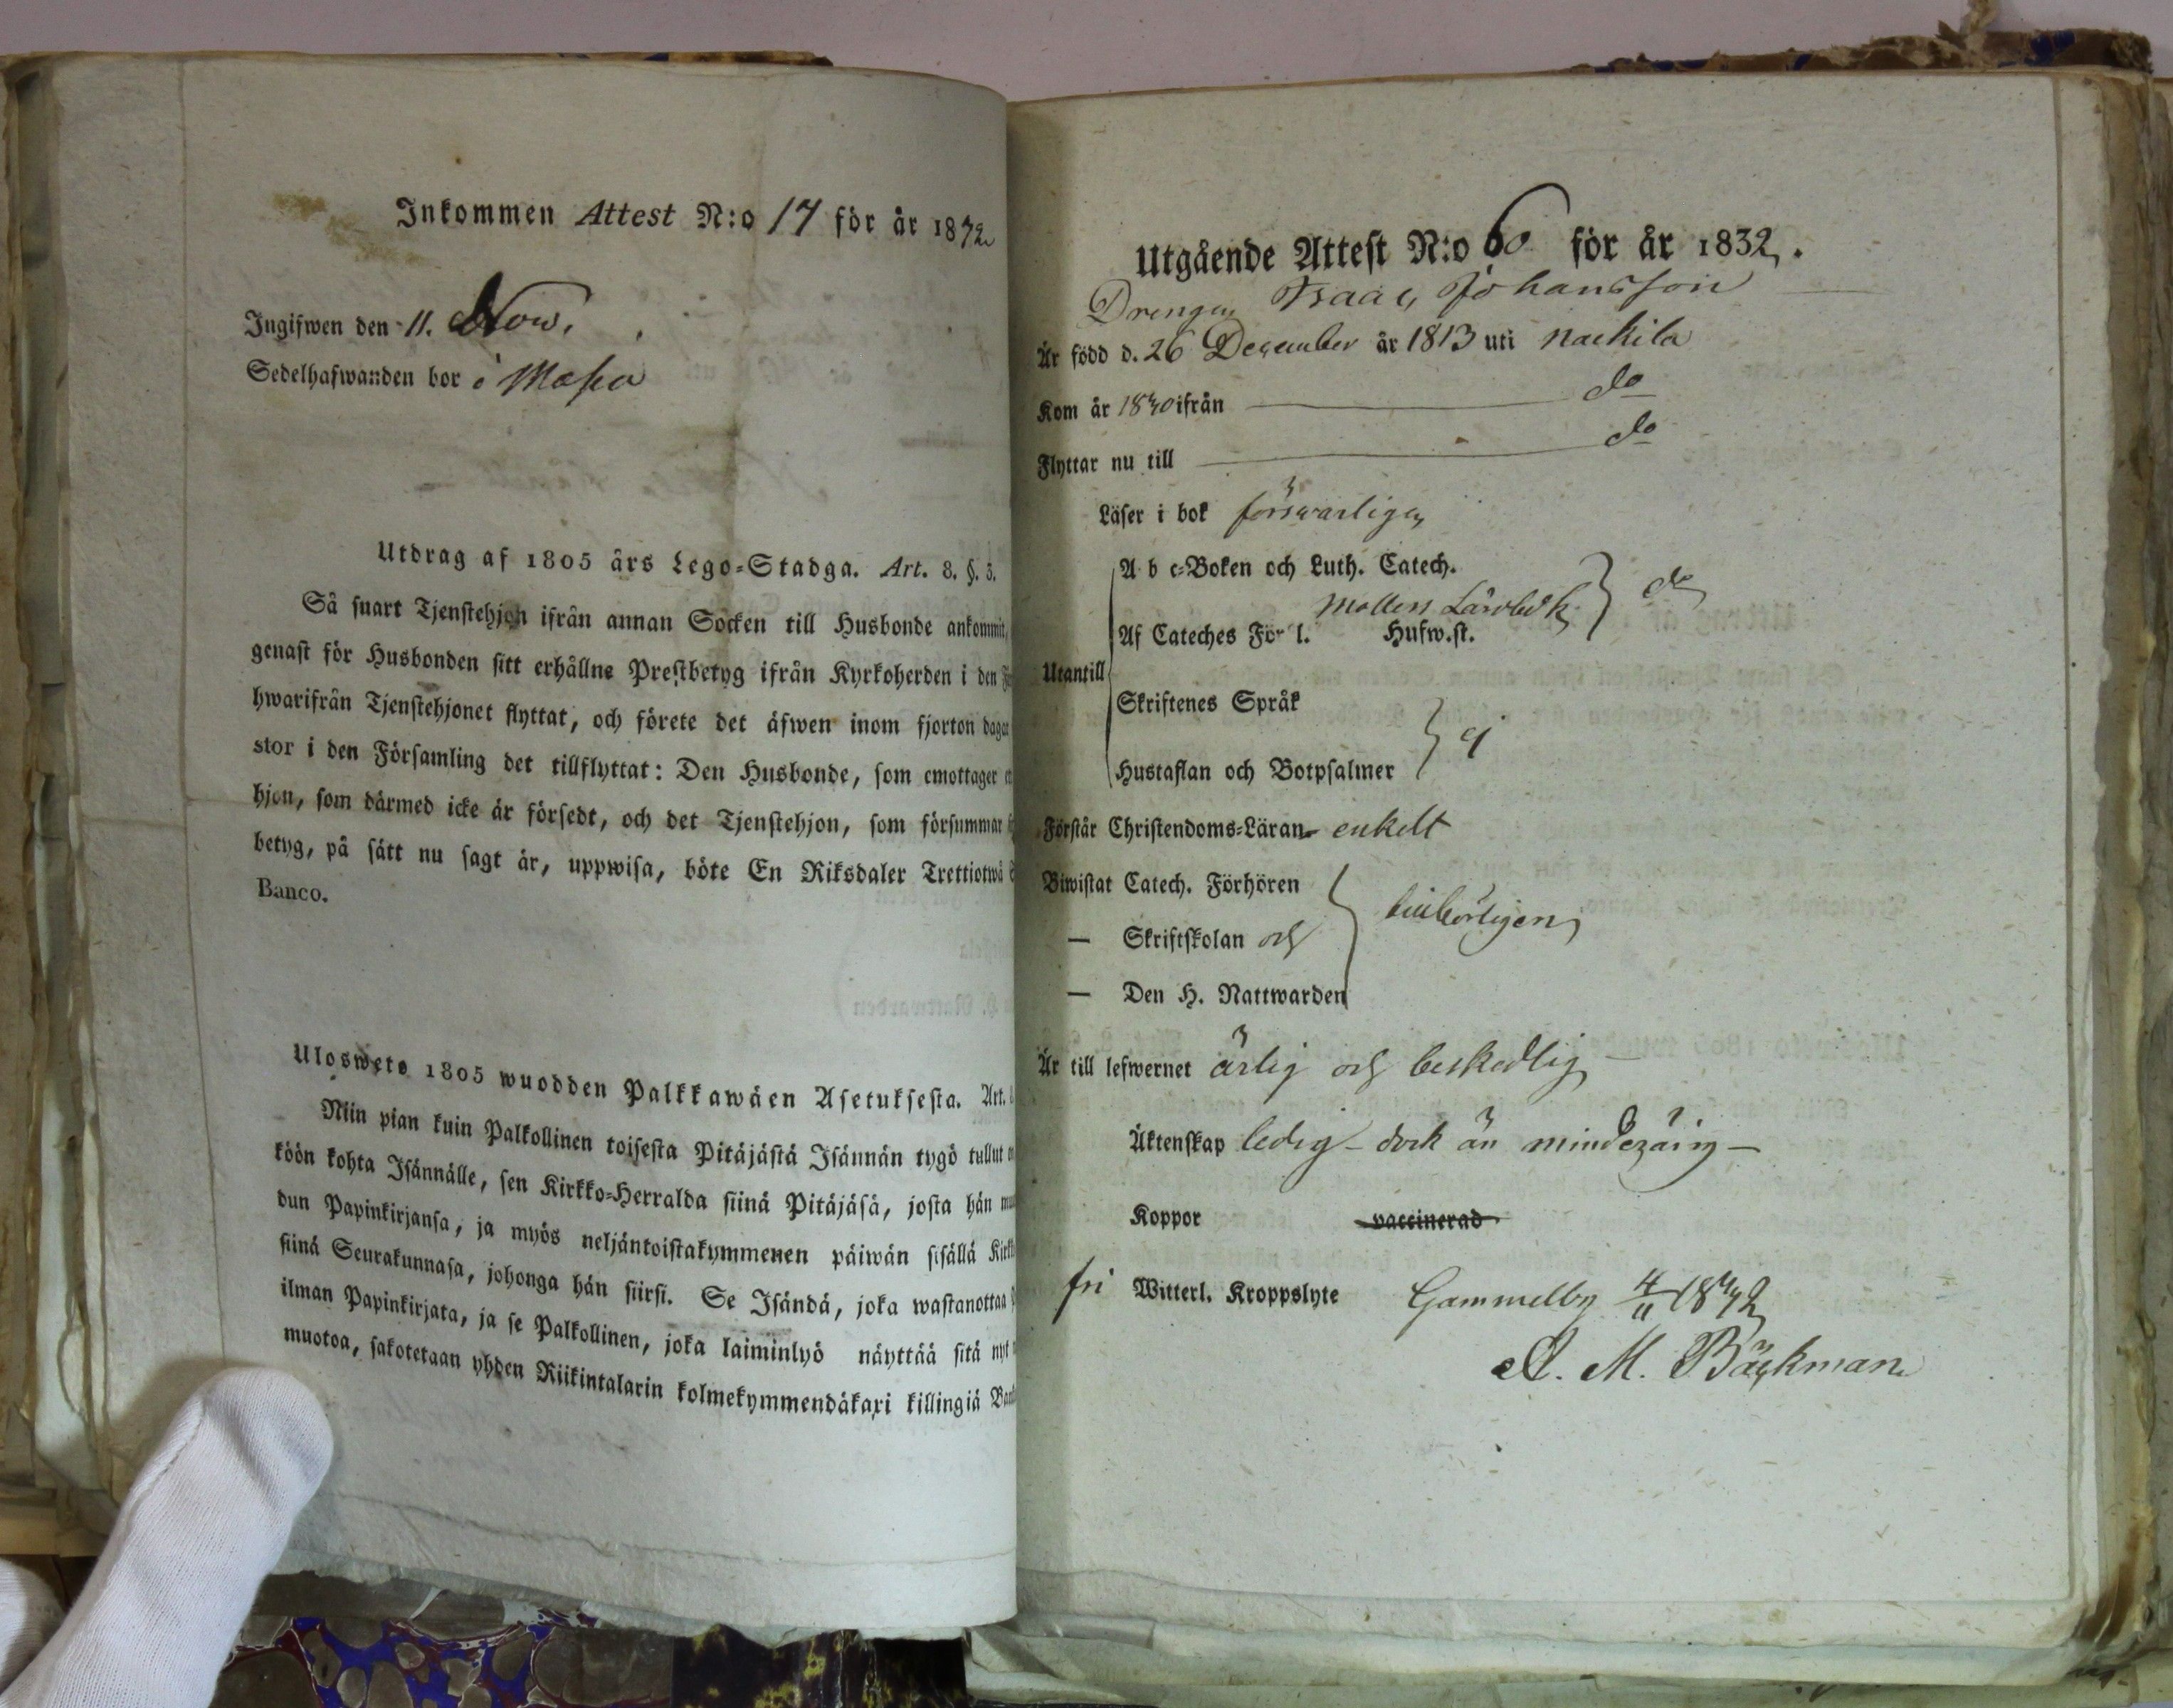 Inkommen Attest N:o 17 för år 1832
Ingifwen den 11. Now.
Sedelhafwanden bor i
Utdrag af 1805 års Lego-Stadga. Art. 8. §. 5.
Så snart Tjenstehjon ifrån annan Socken till Husbonde ankommit,
genast för Husbonden sitt erhållne Prestbetyg ifrån Kyrkoherden i den
hwarifrån Tjenstehjonet flyttat, och förete det äfwen inom fjorton dagar
stor i den Församling det tillflyttat: Den Husbonde, som emottager
hjon, som därmed icke är försedt, och det Tjenstehjon, som försummar
betyg, på sätt nu sagt är, uppwisa, böte En Riksdaler Trettiotwå
Banco.
Ulosweto 1805 wuodden Palkkawäen Asetuksesta. Art.
Niin pian kuin Palkollinen toisesta Pitäjästä Isännän tygö tullut
köön kohta Isännälle, sen Kirkko-Herralda siinä Pitäjäsä, josta hän
dun Papinkirjansa, ja myös neljäntoistakymmenen päiwän sisällä
siinä Seurakunnasa, johonga hän siirsi. Se Isändä, joka wastanottaa
ilman Papinkirjata, ja se Palkollinen, joka laiminlyö näyttää sitä nyt
muotoa, sakotetaan yhden Riikintalarin kolmekymmendäkaxi killingiä
Utgående Attest N:o 60 för år 1832.
Drengen Isaac Johansson
Är född d. 26 December år 1813 uti Nackila
Kom år 1830 ifrån do
Flyttar nu till do
Läser i bok förswarligen
Utantill
A b c-Boken och Luth. Catech.
do
Af Cateches Förkl. Husw.st.
Skriftenes Språk
Hustaflan och Botpsalmer
ej
Förstår Christendoms-Läran enkelt
Biwistat Catech. Förhören
— Skriftskolan och
behörigen
— Den H. Nattwarden
Är till lefwernet ärlig och beskedlig
Äktenskap ledig – dock än minderårig –
Koppor vaccinerad
fri Witterl. Kroppslyte Gammelby 4/11 1832
A. M. Bäckman